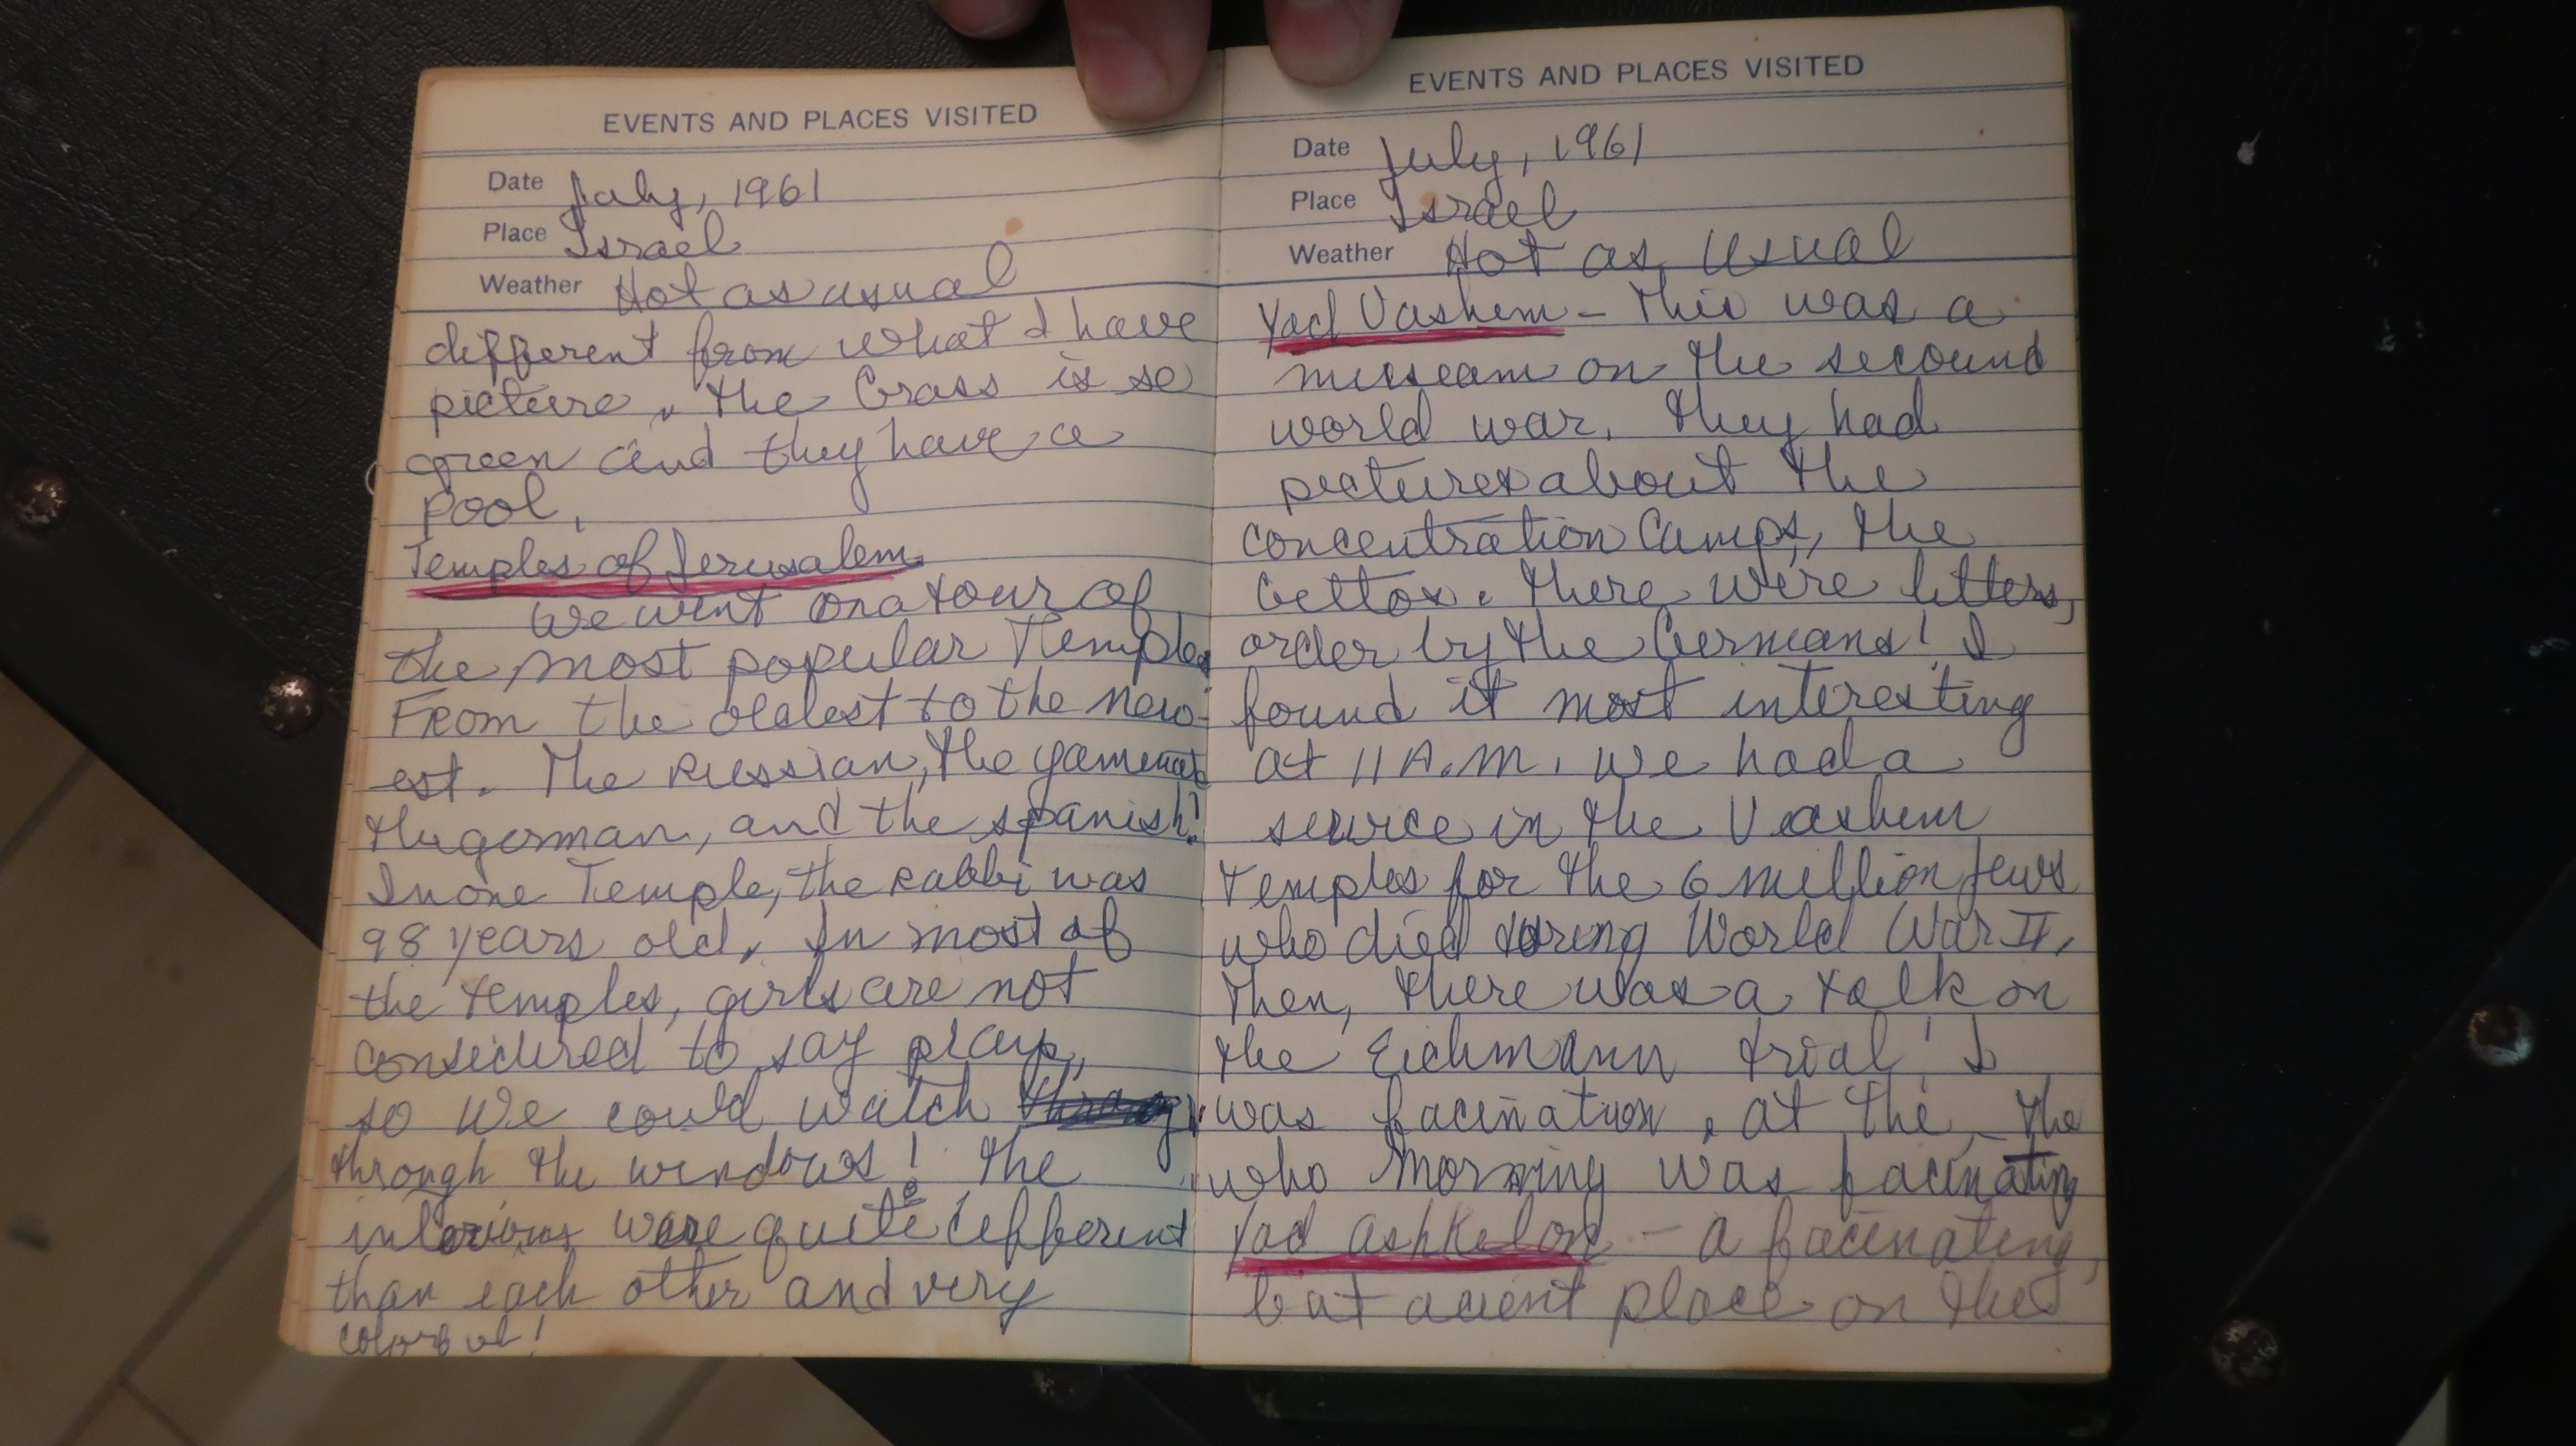 EVENTS AND PLACES VISITED
Date July, 1961
Place Israel
Weather Hot as usual
different from what I have
picture. the Grass is so
green and they have a
pool.
Temples of Jerusalem
We went on a tour of
the most popular Temples
From the oldest to the new-
est. The Russian, the
german, and the spanish!
In one Temple, the rabbi was
98 years old. In most of
the temples, girls are not
considered to say
so we could watch
through the windows! The
interiors were quite different
than each other and very
colorful!
EVENTS AND PLACES VISITED
Date July, 1961
Place Israel
Weather Hot as usual
Yad Vashem - This was a
museam on the secound
world war. They had
pictures about the
concentration Camps, the
Gettos. There were letters,
order by the Germans! I
found it most interesting
at 11 A.M. we had a
service in the Vashem
Temples for the 6 million Jews
who died during World War II.
Then, there was a talk on
the Eichmann trial! I
was facination, at the - The
who morning was facinating
Yad Ashkelon - a facinating,
but acient place on the